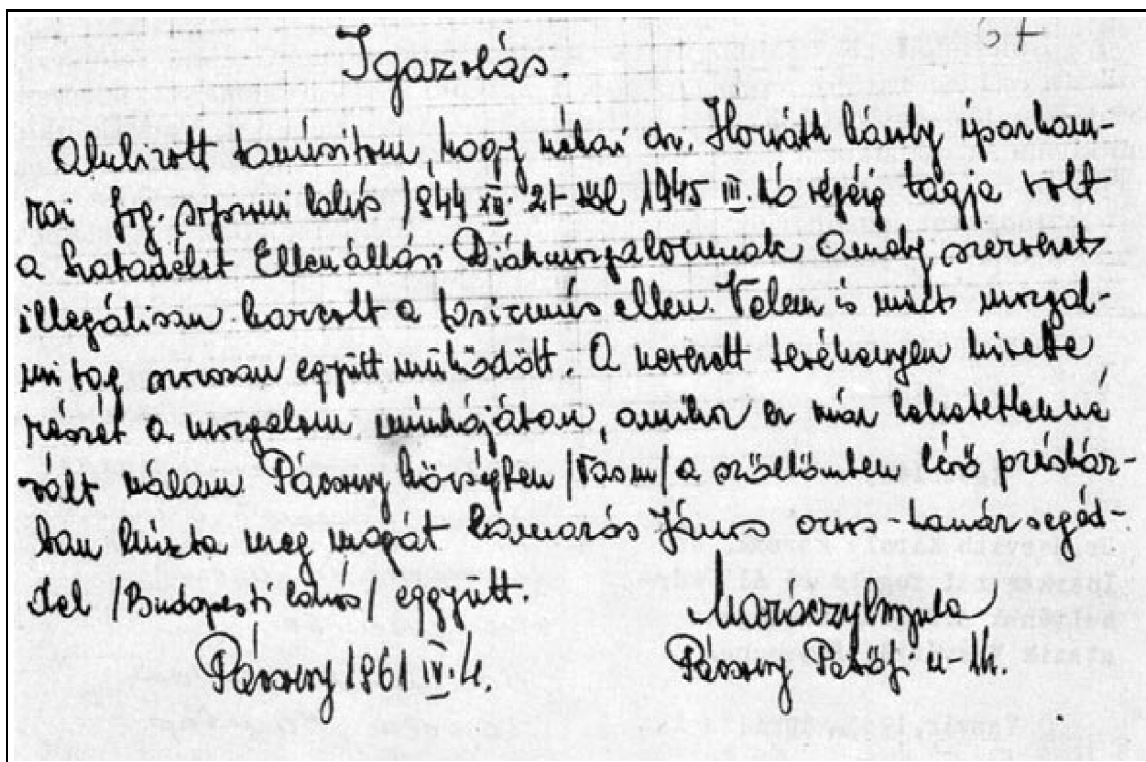 Igazolás.
Alulirott tanúsitom, hogy néhai dr. Horváth Károly iparkam-
rai fog. soproni lakós 1944 XII. 21 től 1945 III. hó végéig tagja volt
a Szabadélet Ellenállási Diákmozgalomnak Amely szervezet
illegálisan harcolt a fasizmus ellen. Velem is mint mozgal-
mi tag szorosan együtt működött. A nevezett tevékenyen kivette
részét a mozgalom munkájában, amikor ez már lehetetlenné
vált nálam Pácsony községben /Vasm/ a szőllőmben lévő présház-
ban húzta meg magát Kamarás János orvs-tanársegéd-
del /Budapesti lakós/ eggyütt.
Pácsony 1961 IV. 4.
Pácsony Petőfi u-